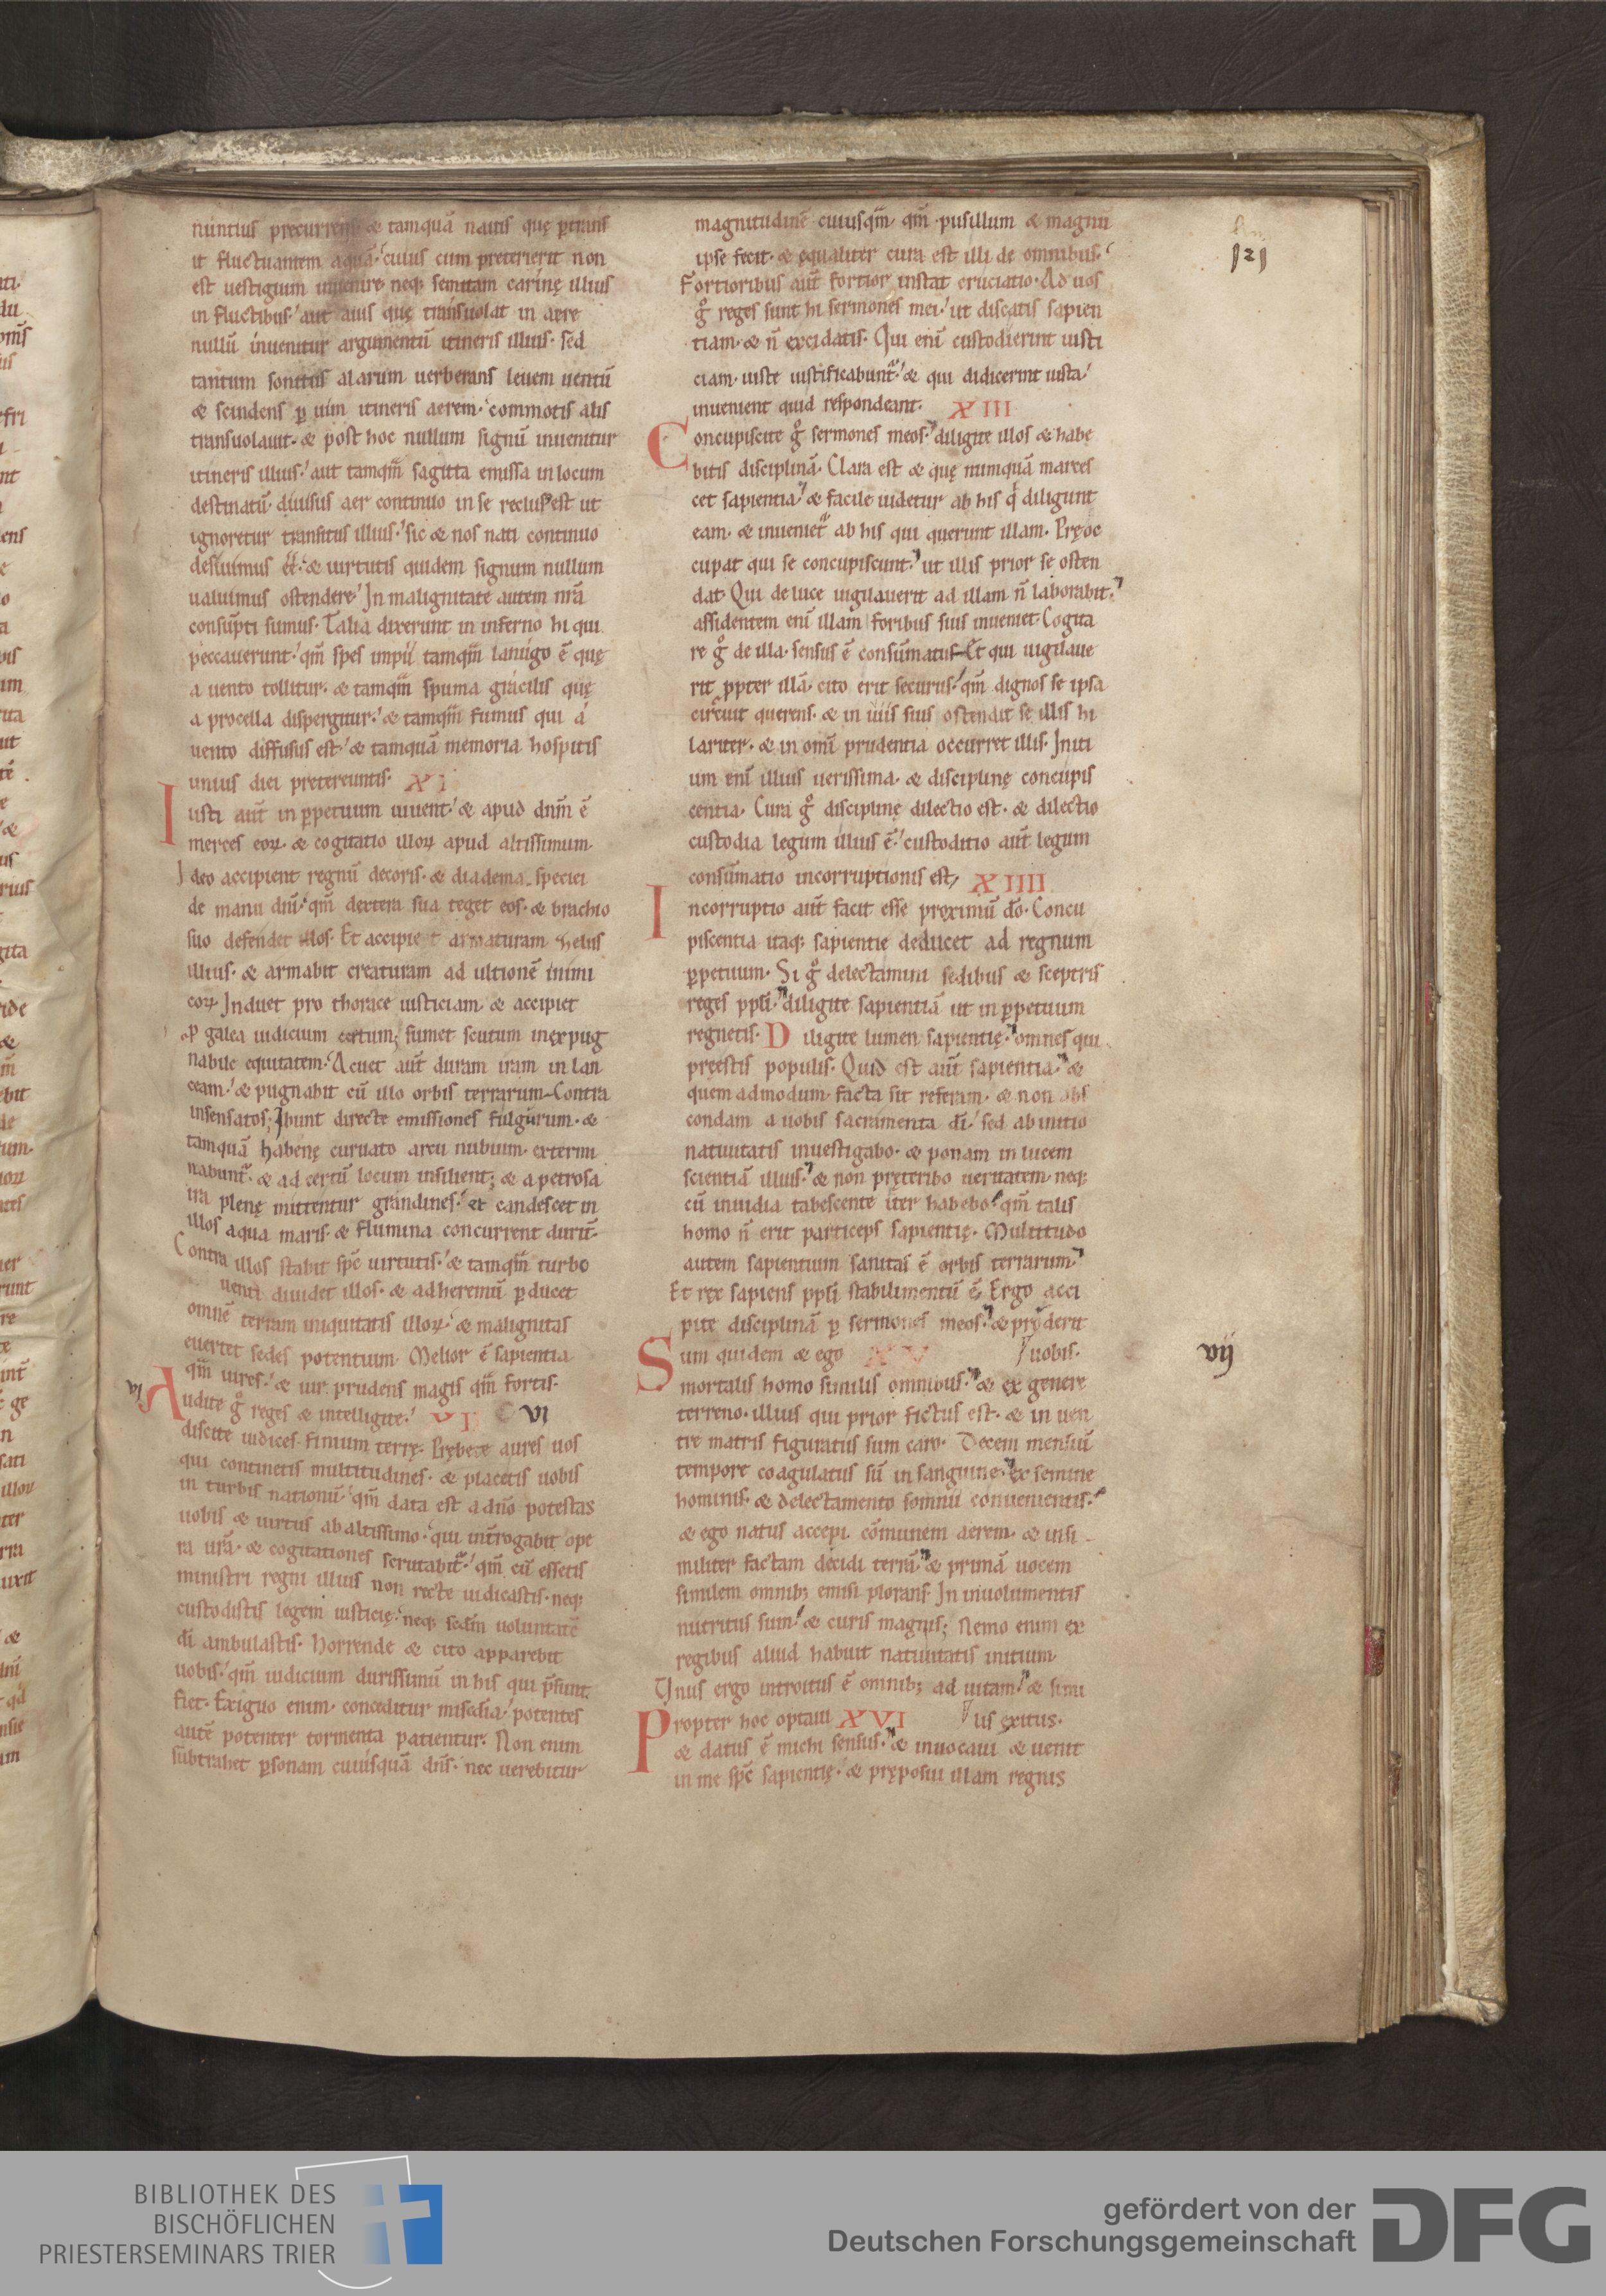 nuntius precurrens & tamquā nauis quę ptrans
it fluctuantem aquā. cuius cum preterierit non
est uestigium inuenire neq; semitam carinę illius
in fluctibus. aut auis quę transuolat in aere
nullū inuenitur argumentū itineris illius. sed
tantum sonitus alarum uerberans leuem uentū
& scindens p uim itineris aerem. commotis alis
transuolauit. & post hoc nullum signū inuenitur
itineris illius. aut tamqm̄ sagitta emissa in locum
destinatū. diuisus aer continuo in se reclusꝰ est ut
ignoretur transitus illius. sic & nos nati continuo
desiuimus eē. & uirtutis quidem signum nullum
ualuimus ostendere. In malignitate autem nr̄a
consūpti sumus. Talia dixerunt in inferno hi qui
peccauerunt. qm̄ spes impii tamqm̄ lanugo ē quę
a uento tollitur. & tamqm̄ spuma gracilis quę
a procella dispergitur. & tamqm̄ fumus qui a
uento diffusus est. & tamquā memoria hospitis
unius diei pretereuntis. XI
Iusti aut̄ in ppetuum uiuent. & apud dnm̄ ē
merces eoꝝ. & cogitatio illoꝝ apud altissimum.
Ideo accipient regnū decoris. & diadema speciei
de manu dn̄i. qm̄ dextera sua teget eos. & brachio
suo defendet illos. Et accipiet armaturam zelus
illius. & armabit creaturam ad ultionē inimi
coꝝ. Induet pro thorace iusticiam & accipiet
p galea iudicium certum; sumet scutum inexpug
nabile equitatem. Acuet aut̄ duram iram in lan
ceam. & pugnabit cū illo orbis terrarum Contra
insensatos; Ibunt directe emissiones fulgurum. &
tamquā habenę curuato arcu nubium. extermi
nabunt᷑. & ad certū locum insilient; & a petrosa
ira plenę mittentur grandines. et candescet in
illos aqua maris. & flumina concurrent durit̄.
Contra illos stabit spc̄ uirtutis. & tamqm̄ turbo
uenti diuidet illos. & ad heremū pducet
omnē terram iniquitatis illoꝝ. & malignitas
euertet sedes potentium. Melior ē sapientia
qm̄ uires. & uir prudens magis qm̄ fortis.
vi Audite g̊ reges & intelligite. VI vi
discite iudices finium terrę. Prębete aures uos
qui continetis multitudines. & placetis uobis
in turbis nationū. qm̄ data est a dn̄o potestas
uobis & uirtus ab altissimo. qui int̄rogabit ope
ra ur̄a. & cogitationes scrutabit᷑. qm̄ cū essetis
ministri regni illius non recte iudicastis. neq;
custodistis legem iusticię. neq; scdm̄ uoluntatē
dī ambulastis. Horrende & cito apparebit
uobis. qm̄ iudicium durissimū in his qui p̄sunt
fiet. Exiguo enim conceditur miscd̄ia. potentes
autē potenter tormenta patientur. Non enim
subtrahet psonam cuiusquā dn̄s. nec uerebitur
magnitudinē cuiusqm̄. qm̄ pusillum & magnū
ipse fecit. & equaliter cura est illi de omnibus.
Fortioribus aut̄ fortior instat cruciatio. Ad uos
g̊ reges sunt hi sermones mei. ut discatis sapien
tiam. & n̄ excidatis. Qui enī custodierint iusti
ciam. iuste iustificabunt᷑. & qui didicerint iusta.
inuenient quid respondeant. XIII
Concupiscite g̊ sermones meos. diligite illos & habe
bitis disciplinā. Clara est & quę numquā marces
cet sapientia. & facile uidetur ab his q̇ diligunt
eam. & inueniet᷑ ab his qui querunt illam. Pręoc
cupat qui se concupiscunt. ut illis prior se osten
dat. Qui de luce uigilauerit ad illam n̄ laborabit.
assidentem enī illam foribus suis inueniet. Cogita
re g̊ de illa. sensus ē consūmatus. Et qui uigilaue
rit ppter illā. cito erit securus. qm̄ dignos se ipsa
circuit querens. & in uiis suis ostendit se illis hi
lariter. & in omī prudentia occurret illis. Initi
um enī illius uerissima. & disciplinę concupis
centia. Cura g̊ disciplinę dilectio est. & dilectio
custodia legum illius ē. custoditio aut̄ legum
consūmatio incorruptionis est. XIIII
Incorruptio aut̄ facit esse proximū dō. Concu
piscentia itaq; sapientie deducet ad regnum
ppetuum. Si g̊ delectamini sedibus & sceptris
reges ppli. diligite sapientiā ut in ppetuum
regnetis. Diligite lumen sapientię. omnes qui
preestis populis. Quid est aut̄ sapientia. &
quemadmodum facta sit referam. & non abs
condam a uobis sacramenta dī. sed ab initio
natiuitatis inuestigabo. & ponam in lucem
scientiā illius. & non pręteribo ueritatem. neq;
cū inuidia tabescente iter habebo. qm̄ talis
homo n̄ erit particeps sapientię. Multitudo
autem sapientium sanitas ē orbis terrarum.
Et rex sapiens ppli stabilimentū ē. Ergo acci
pite disciplinā p sermones meos. & pderit
Sum quidem & ego XV uobis.
mortalis homo similis omnibus. & ex genere
terreno. illius qui prior fictus est. & in uen
tre matris figuratus sum caro. Decem mensiū
tempore coagulatus sū in sanguine. ex semine
hominis. & delectamento somnii conuenientis.
& ego natus accepi. cōmunem aerem. & insi
militer factam decidi terrā. & primā uocem
similem omnib; emisi plorans. In inuolumentis
nutritus sum. & curis magnis; Nemo enim ex
regibus aliud habuit natiuitatis initium.
Unus ergo introitus ē omnib; ad uitam. & simi
Propter hoc optaui XVI lis exitus.
& datus ē michi sensus. & inuocaui & uenit
in me spc̄ sapientię. & pręposui illam regnis
121
vij
BIBLIOTHEK DES
BISCHÖFLICHEN
PRIESTERSEMINARS TRIER
gefördert von der
Deutschen Forschungsgemeinschaft
DFG